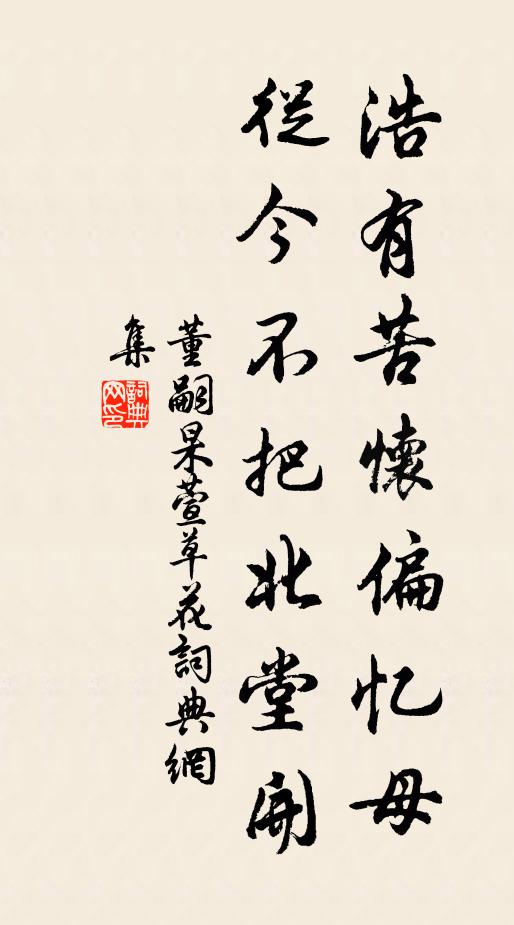 浩有苦懷偏忆母
從今不把北堂開
董嗣杲萱草花詞典網
集
詞典网印